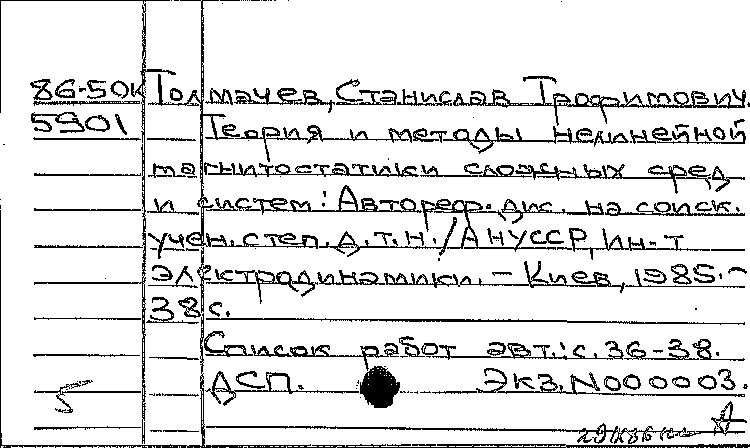 86-50к Толмачев, Станислав Трофимович.
5901 Теория и методы нелинейной
магнитостатики сложных сред
и систем: Автореф. дис. на соиск.
учен. степ. д.т.н./АН УССР, Ин-т
электродинамики. – Киев, 1985. –
38 с.
Список работ авт.: с. 36-38.
ДСП. Экз. N000003.
5